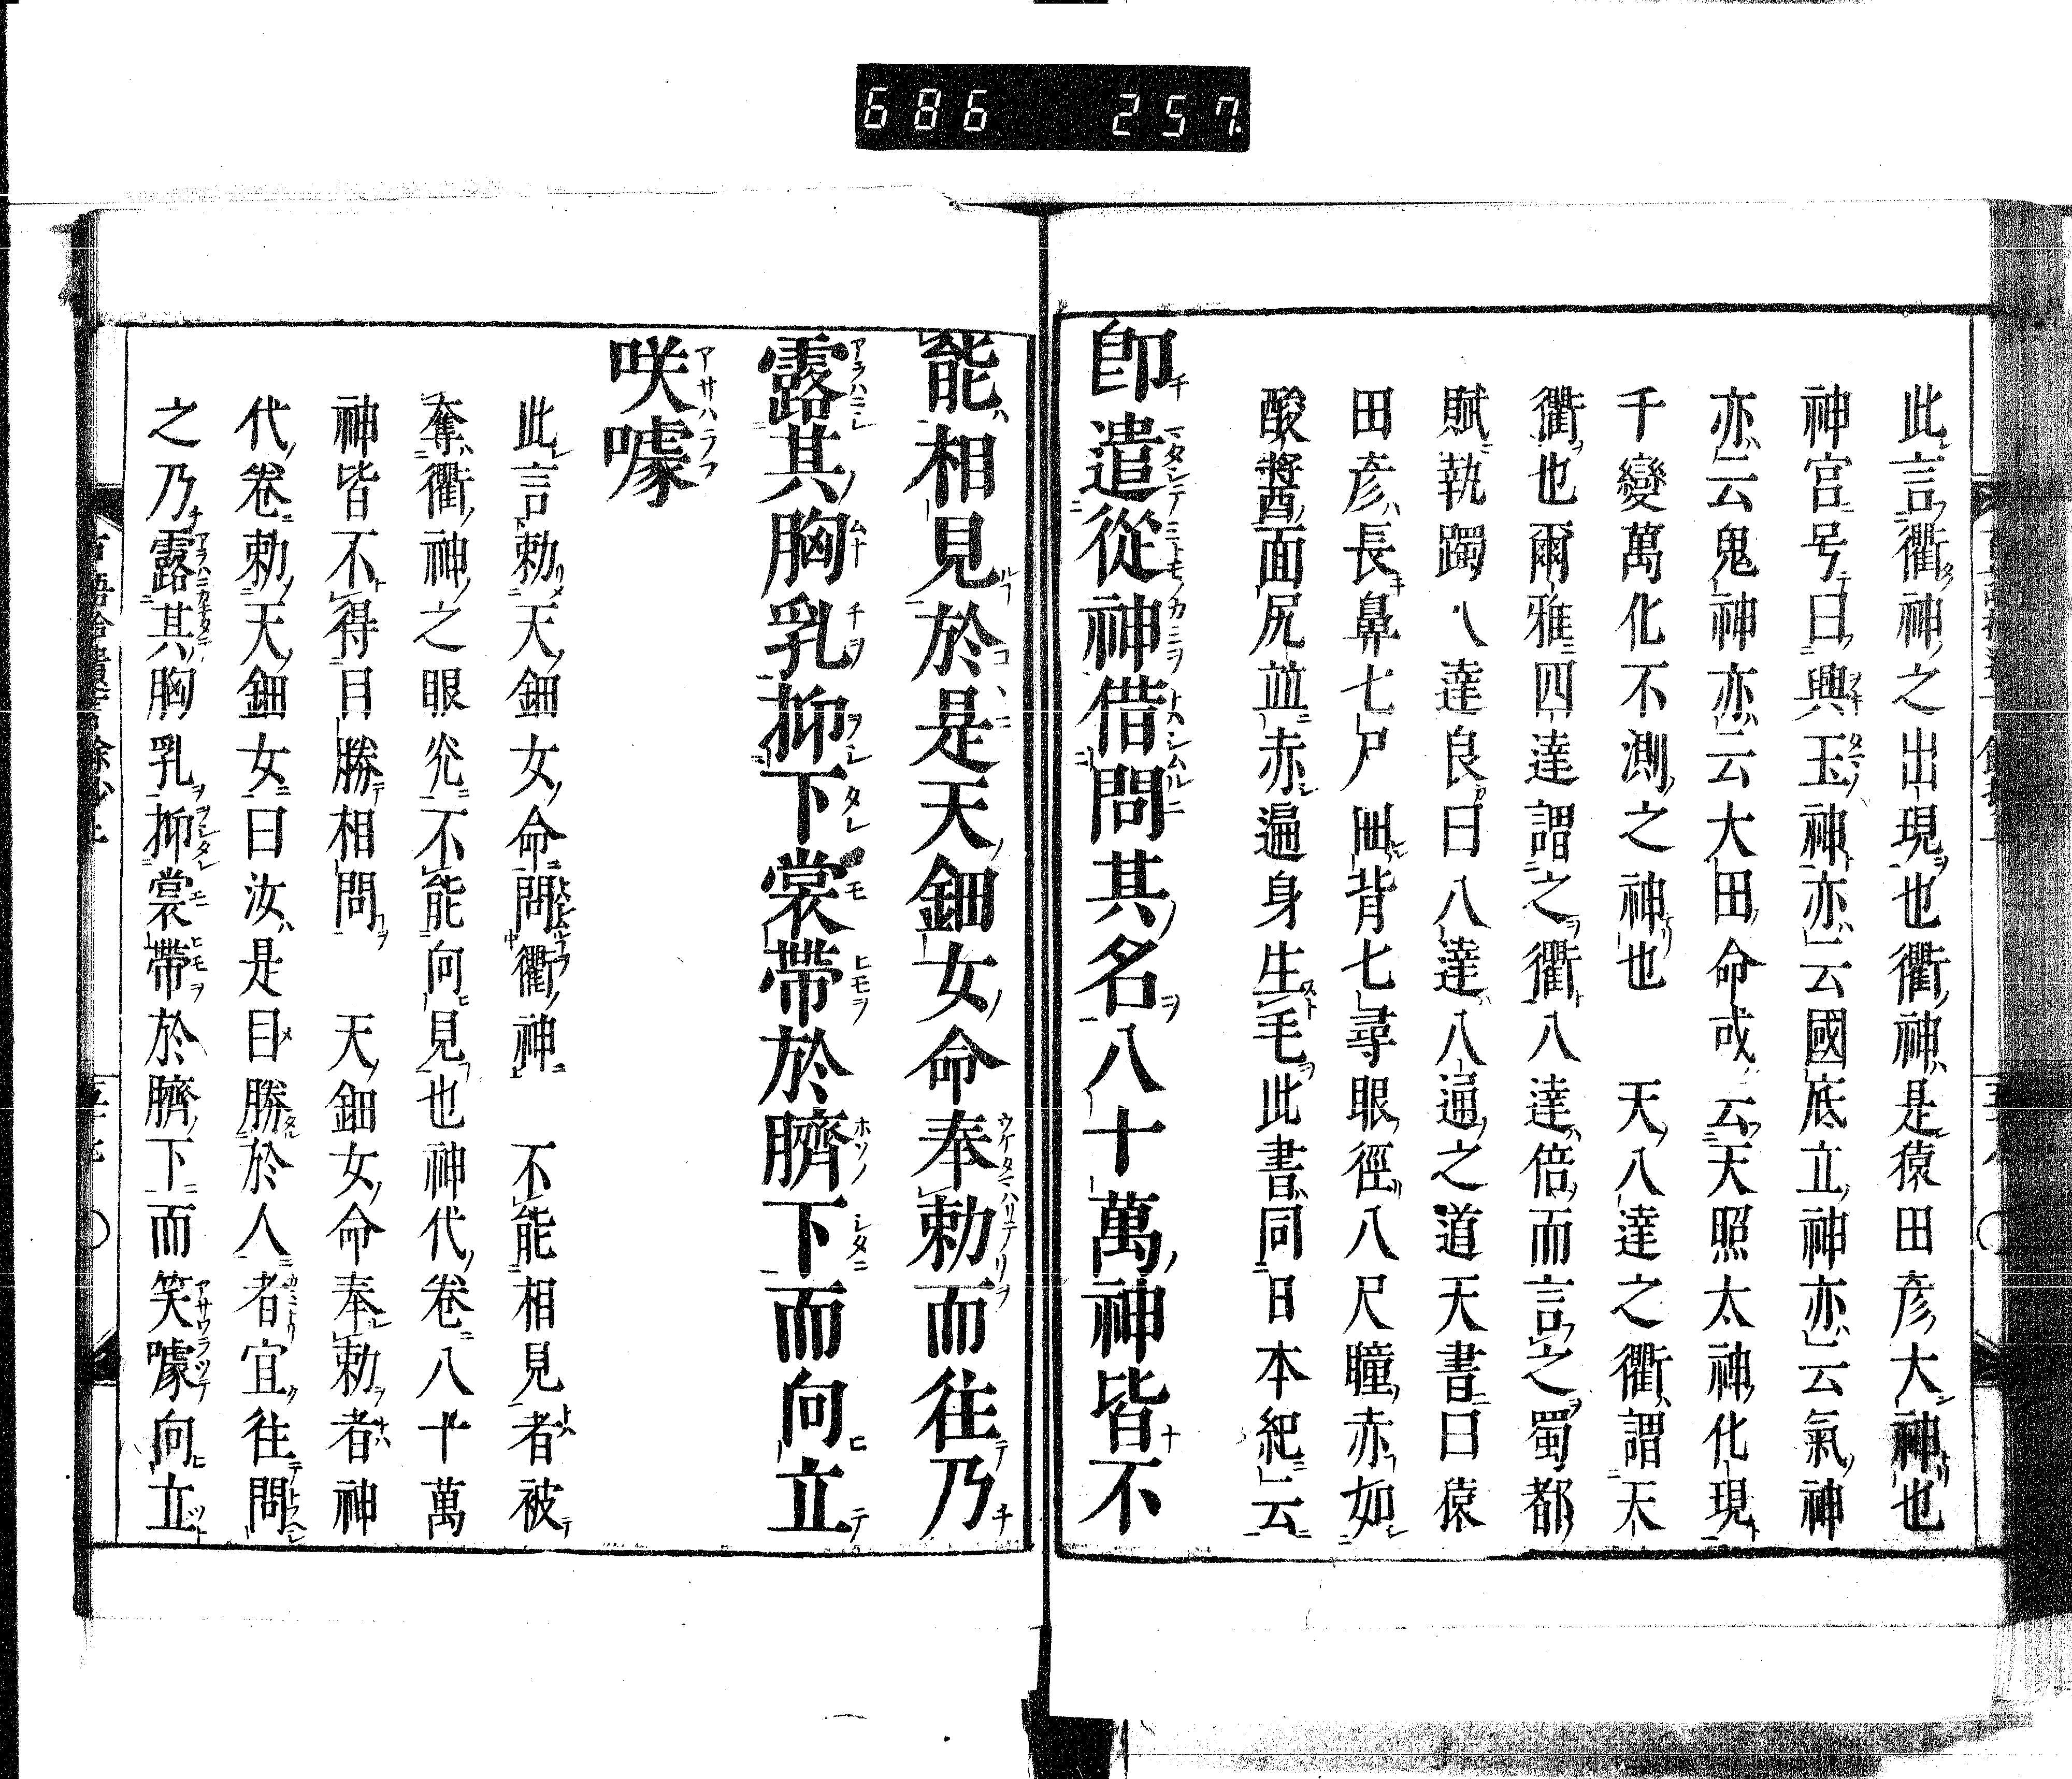 686 257
此言衢神之出現也衢神是猿田彦大神也
神宮号曰興玉神亦云國底立神亦云氣神
亦云鬼神亦云大田命或云天照太神化現
千變萬化不測之神也 天八達之衢謂天
衢也爾雅四達謂之衢八達倍而言之蜀都
賦執躅八達良曰八達八通之道天書曰猿
田彦長鼻七尸 冊背七尋眼徑八尺瞳赤如
酸醤面尻並赤遍身生毛此書同日本紀云
卽遣從神借問其名八十萬神皆不
能相見於是天鈿女命奉勅而往乃
露其胸乳抑下裳帶於臍下而向立
咲噱
此言勅天鈿女命問衢神 不能相見者被
奪衢神之眼光不能向見也神代卷八十萬
神皆不得目勝相問 天鈿女命奉勅者神
代卷勅天鈿女曰汝是目勝於人者宜往問
之乃露其胸乳抑裳帶於臍下而笑噱向立